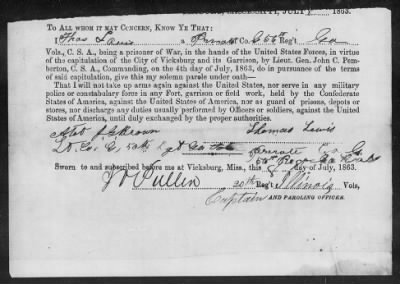 JULY 1863.
TO ALL WHOM IT MAY CONCERN, KNOW YE THAT:
I Thos Lewis a Private Co. G 56th Reg't Ga
Vols., C. S. A., being a prisoner of War, in the hands of the United States Forces, in virtue
of the capitulation of the City of Vicksburg and its Garrison, by Lieut. Gen. John C. Pem-
berton, C. S. A., Commanding, on the 4th day of July, 1863, do in pursuance of the terms
of said capitulation, give this my solemn parole under oath—
That I will not take up arms again against the United States, nor serve in any military
police or constabulary force in any Fort, garrison or field work, held by the Confederate
States of America, against the United States of America, nor as guard of prisons, depots or
stores, nor discharge any duties usually performed by Officers or soldiers, against the United
States of America, until duly exchanged by the proper authorities.
Brown Thomas Lewis
Lt Co. G, 56th Private Co G
56th Reg Ga Vols
Sworn to and subscribed before me at Vicksburg, Miss., this 8 day of July, 1863.
Cullin 20th Reg't Illinois Vols,
Captain AND PAROLING OFFICER.